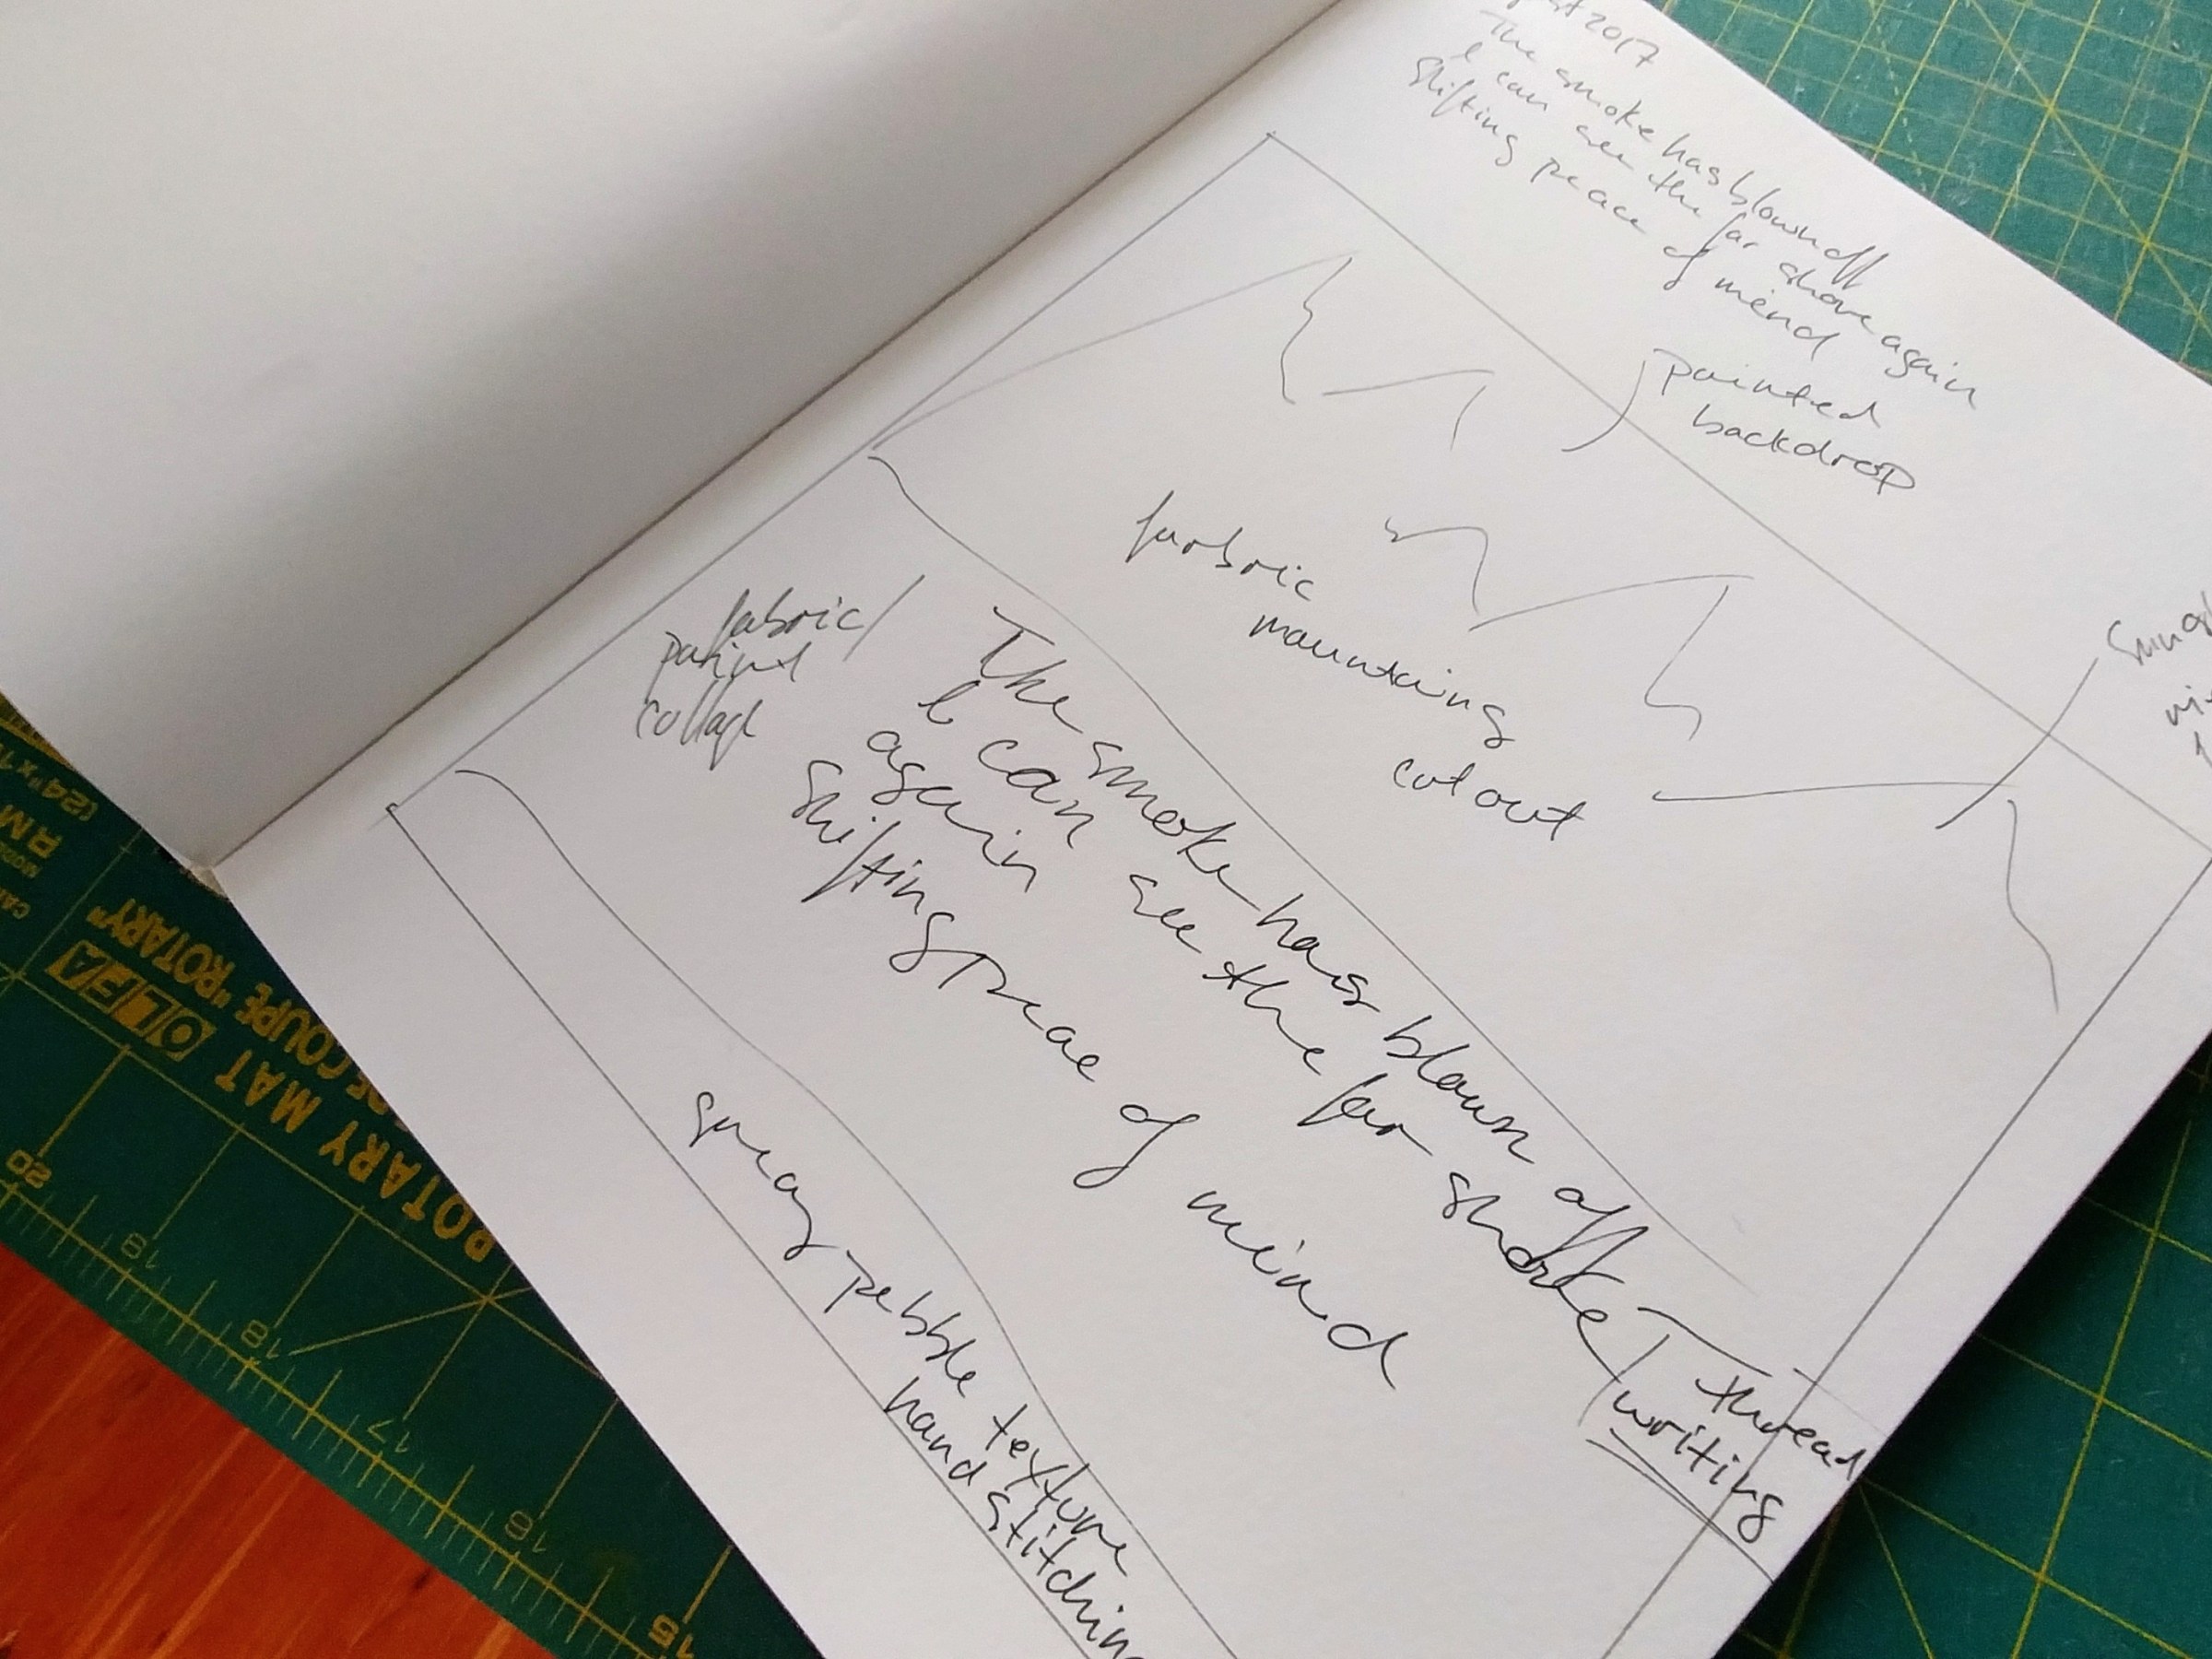 2017
The smoke has blown off
I can see the far shore again
Shifting peace of mind
painted
backdrop
fabric
mountains
cut out
fabric/
paint
collage
The smoke has blown off
I can see the far shore
again
Shifting peace of mind
thread
writing
gray pebble texture
hand stitching
ROTARY MAT
DE COUPE "ROTARY"
OLFA
RM
(24"x
20
19
18
17
16
15